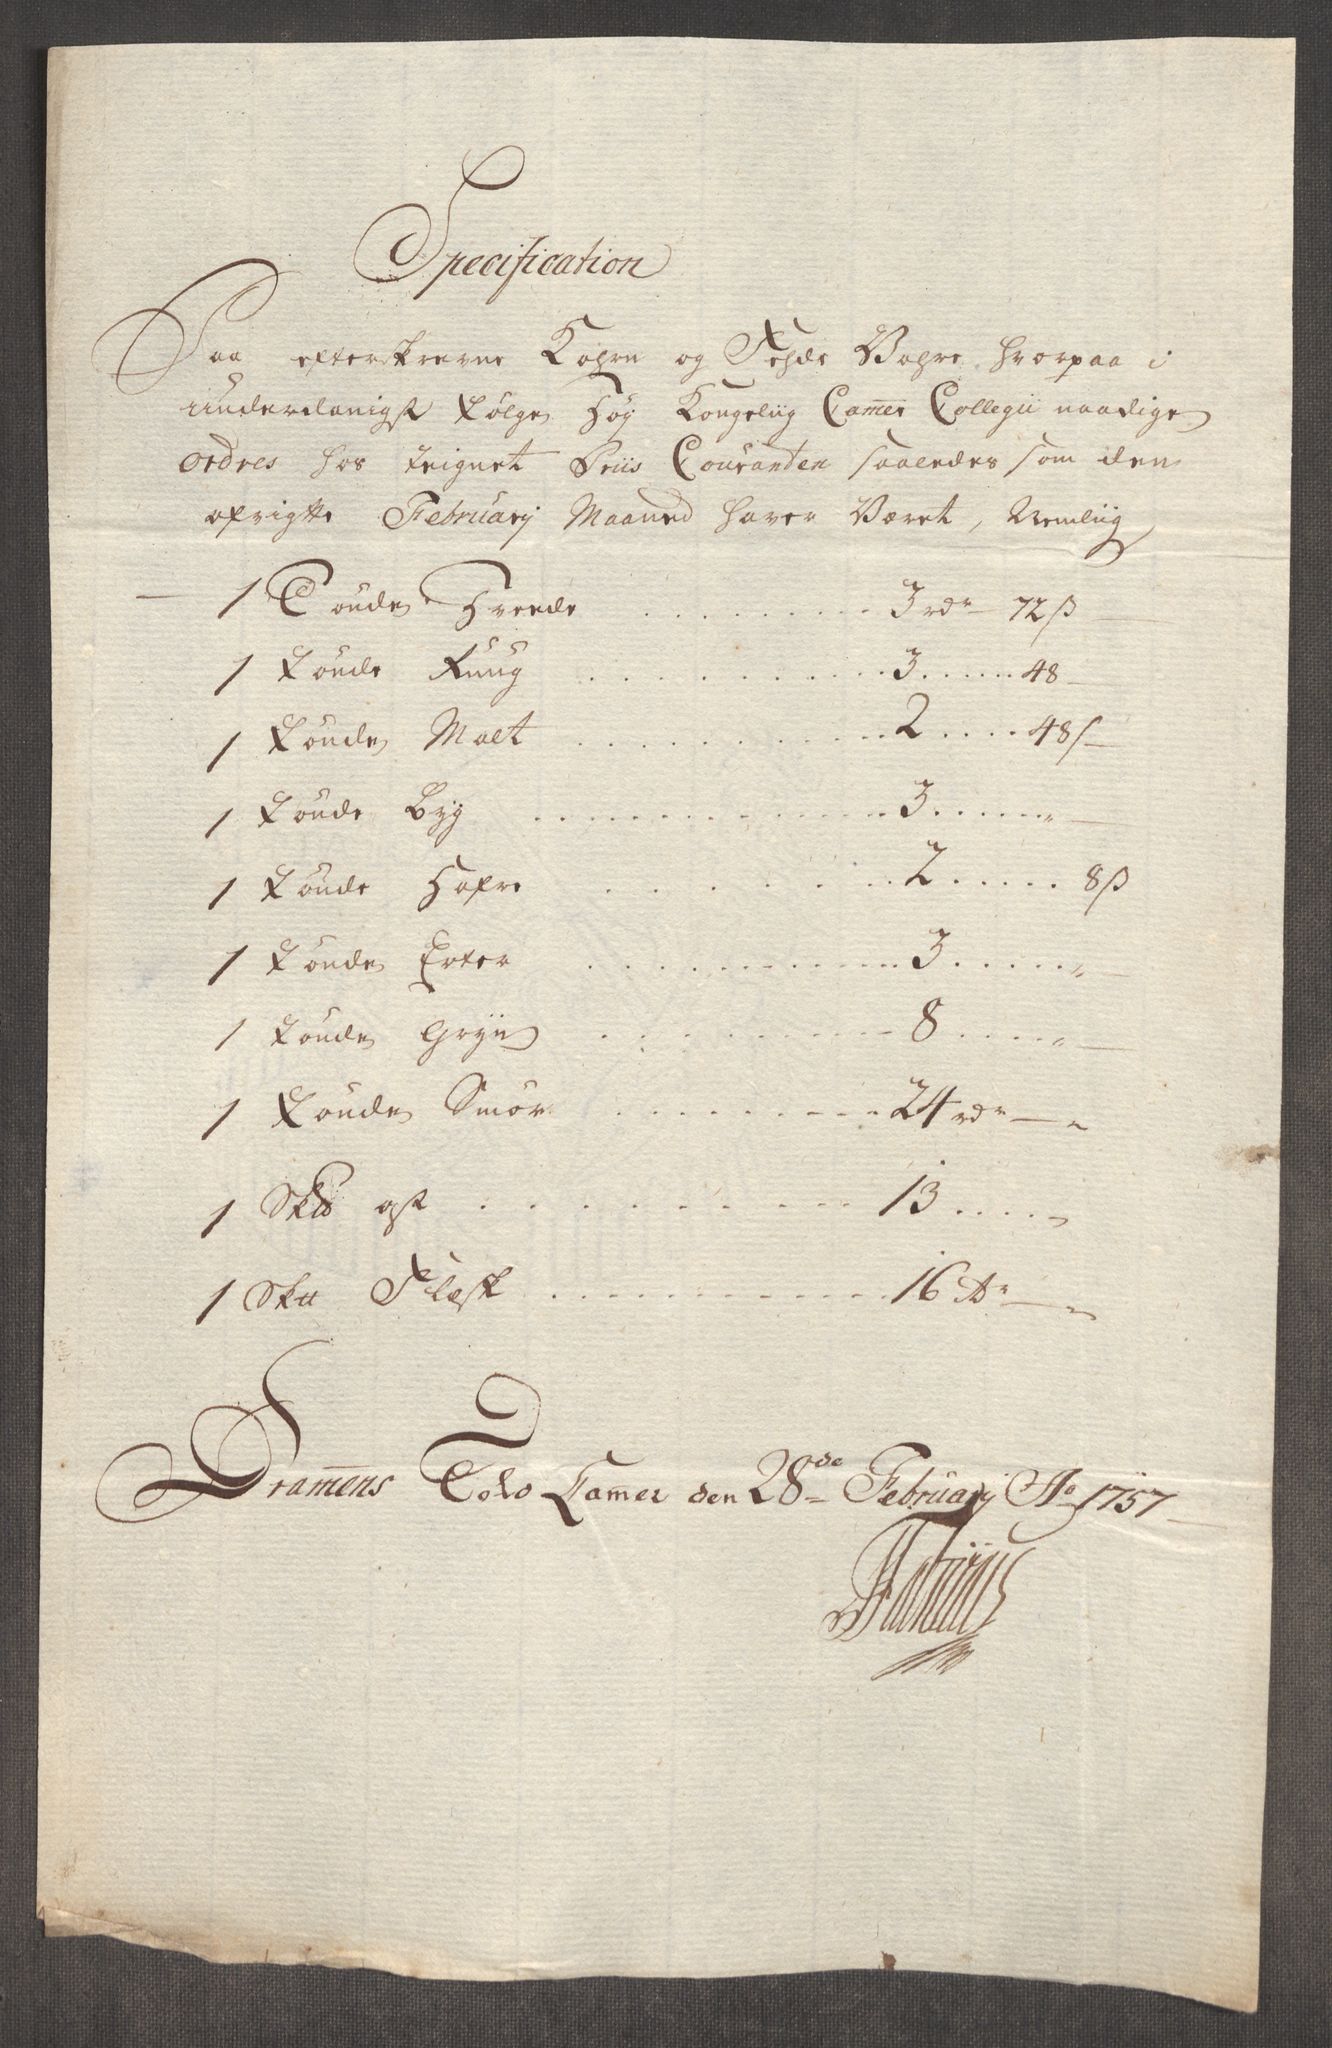 Specification
Paa efterskrevne Kohrn og Fehde Vahre, hvorpaa i
underdanigst følge Høy Kongeliig Cammer Collegii naadige
ordres hos teignet Priis Couranten saaledes som den
afvigte February Maaned haver Været, Nemliig
1 Tønde Hvede . . . . . . . . 3 rdr 72 ß
1 tønde Ruug . . . . . . . . 3 . . . . . 48
1 tønde Malt . . . . . . . . 2 . . . . . 48 ß
1 tønde Byg . . . . . . . . 3 . . . . . "
1 tønde Hafre . . . . . . . . 2 . . . . . 8 ß
1 tønde Erter . . . . . . . . 3 . . . . . "
1 tønde Gryn . . . . . . . . 8 . . . . . "
1 tønde Smør . . . . . . . . 24 rdr — "
1 Sk℔ ost . . . . . . . . 13 . . . . "
1 Sk℔ Flesk . . . . . . . . 16 dr — "
Dramens Told Camer den 28de February Ao 1757